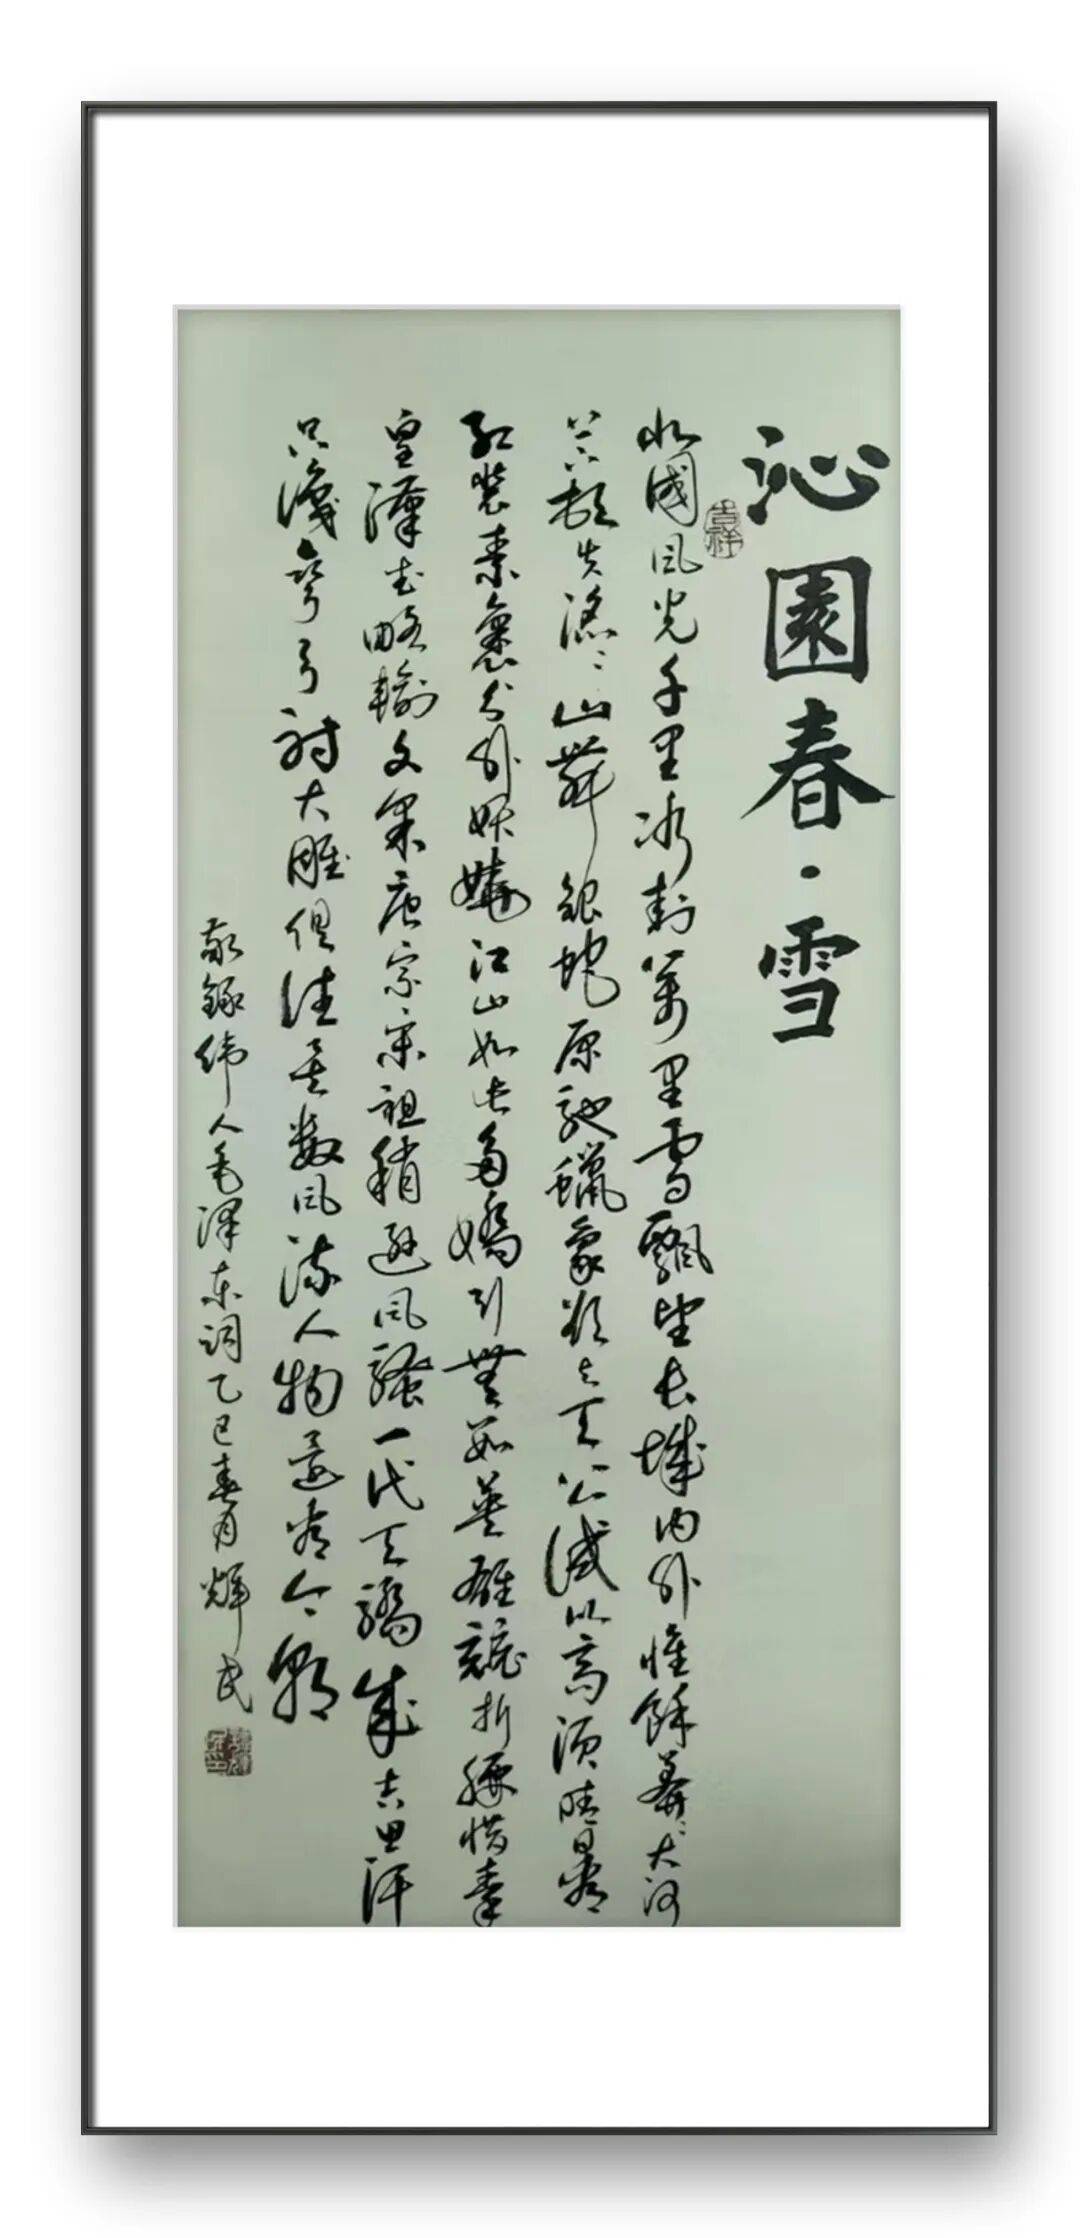 沁園春·雪
吉祥
北國風光千里冰封萬里雪飄望長城內外惟餘莽〻大河
上下頓失滔〻山舞銀蛇原馳蠟象欲與天公試比高須晴日看
紅裝素裹分外妖嬈江山如此多嬌引無數英雄競折腰惜秦
皇漢武略輸文采唐宗宋祖稍遜風騷一代天驕成吉思汗
只識彎弓射大雕俱往矣數風流人物還看今朝
敬錄偉人毛澤东詞乙巳春月輝民